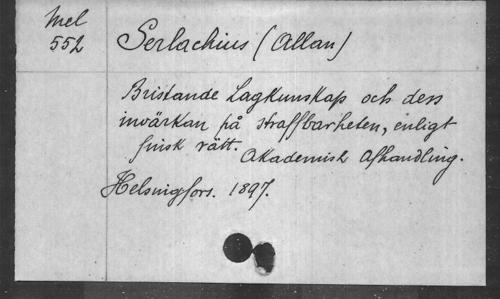 Mel
552
Serlachius (Allan)
Bristande Lagkunskap och dess
invärkan på straffbarheten, enligt
finsk rätt. Akademisk Afhandling.
Helsingfors. 1897.